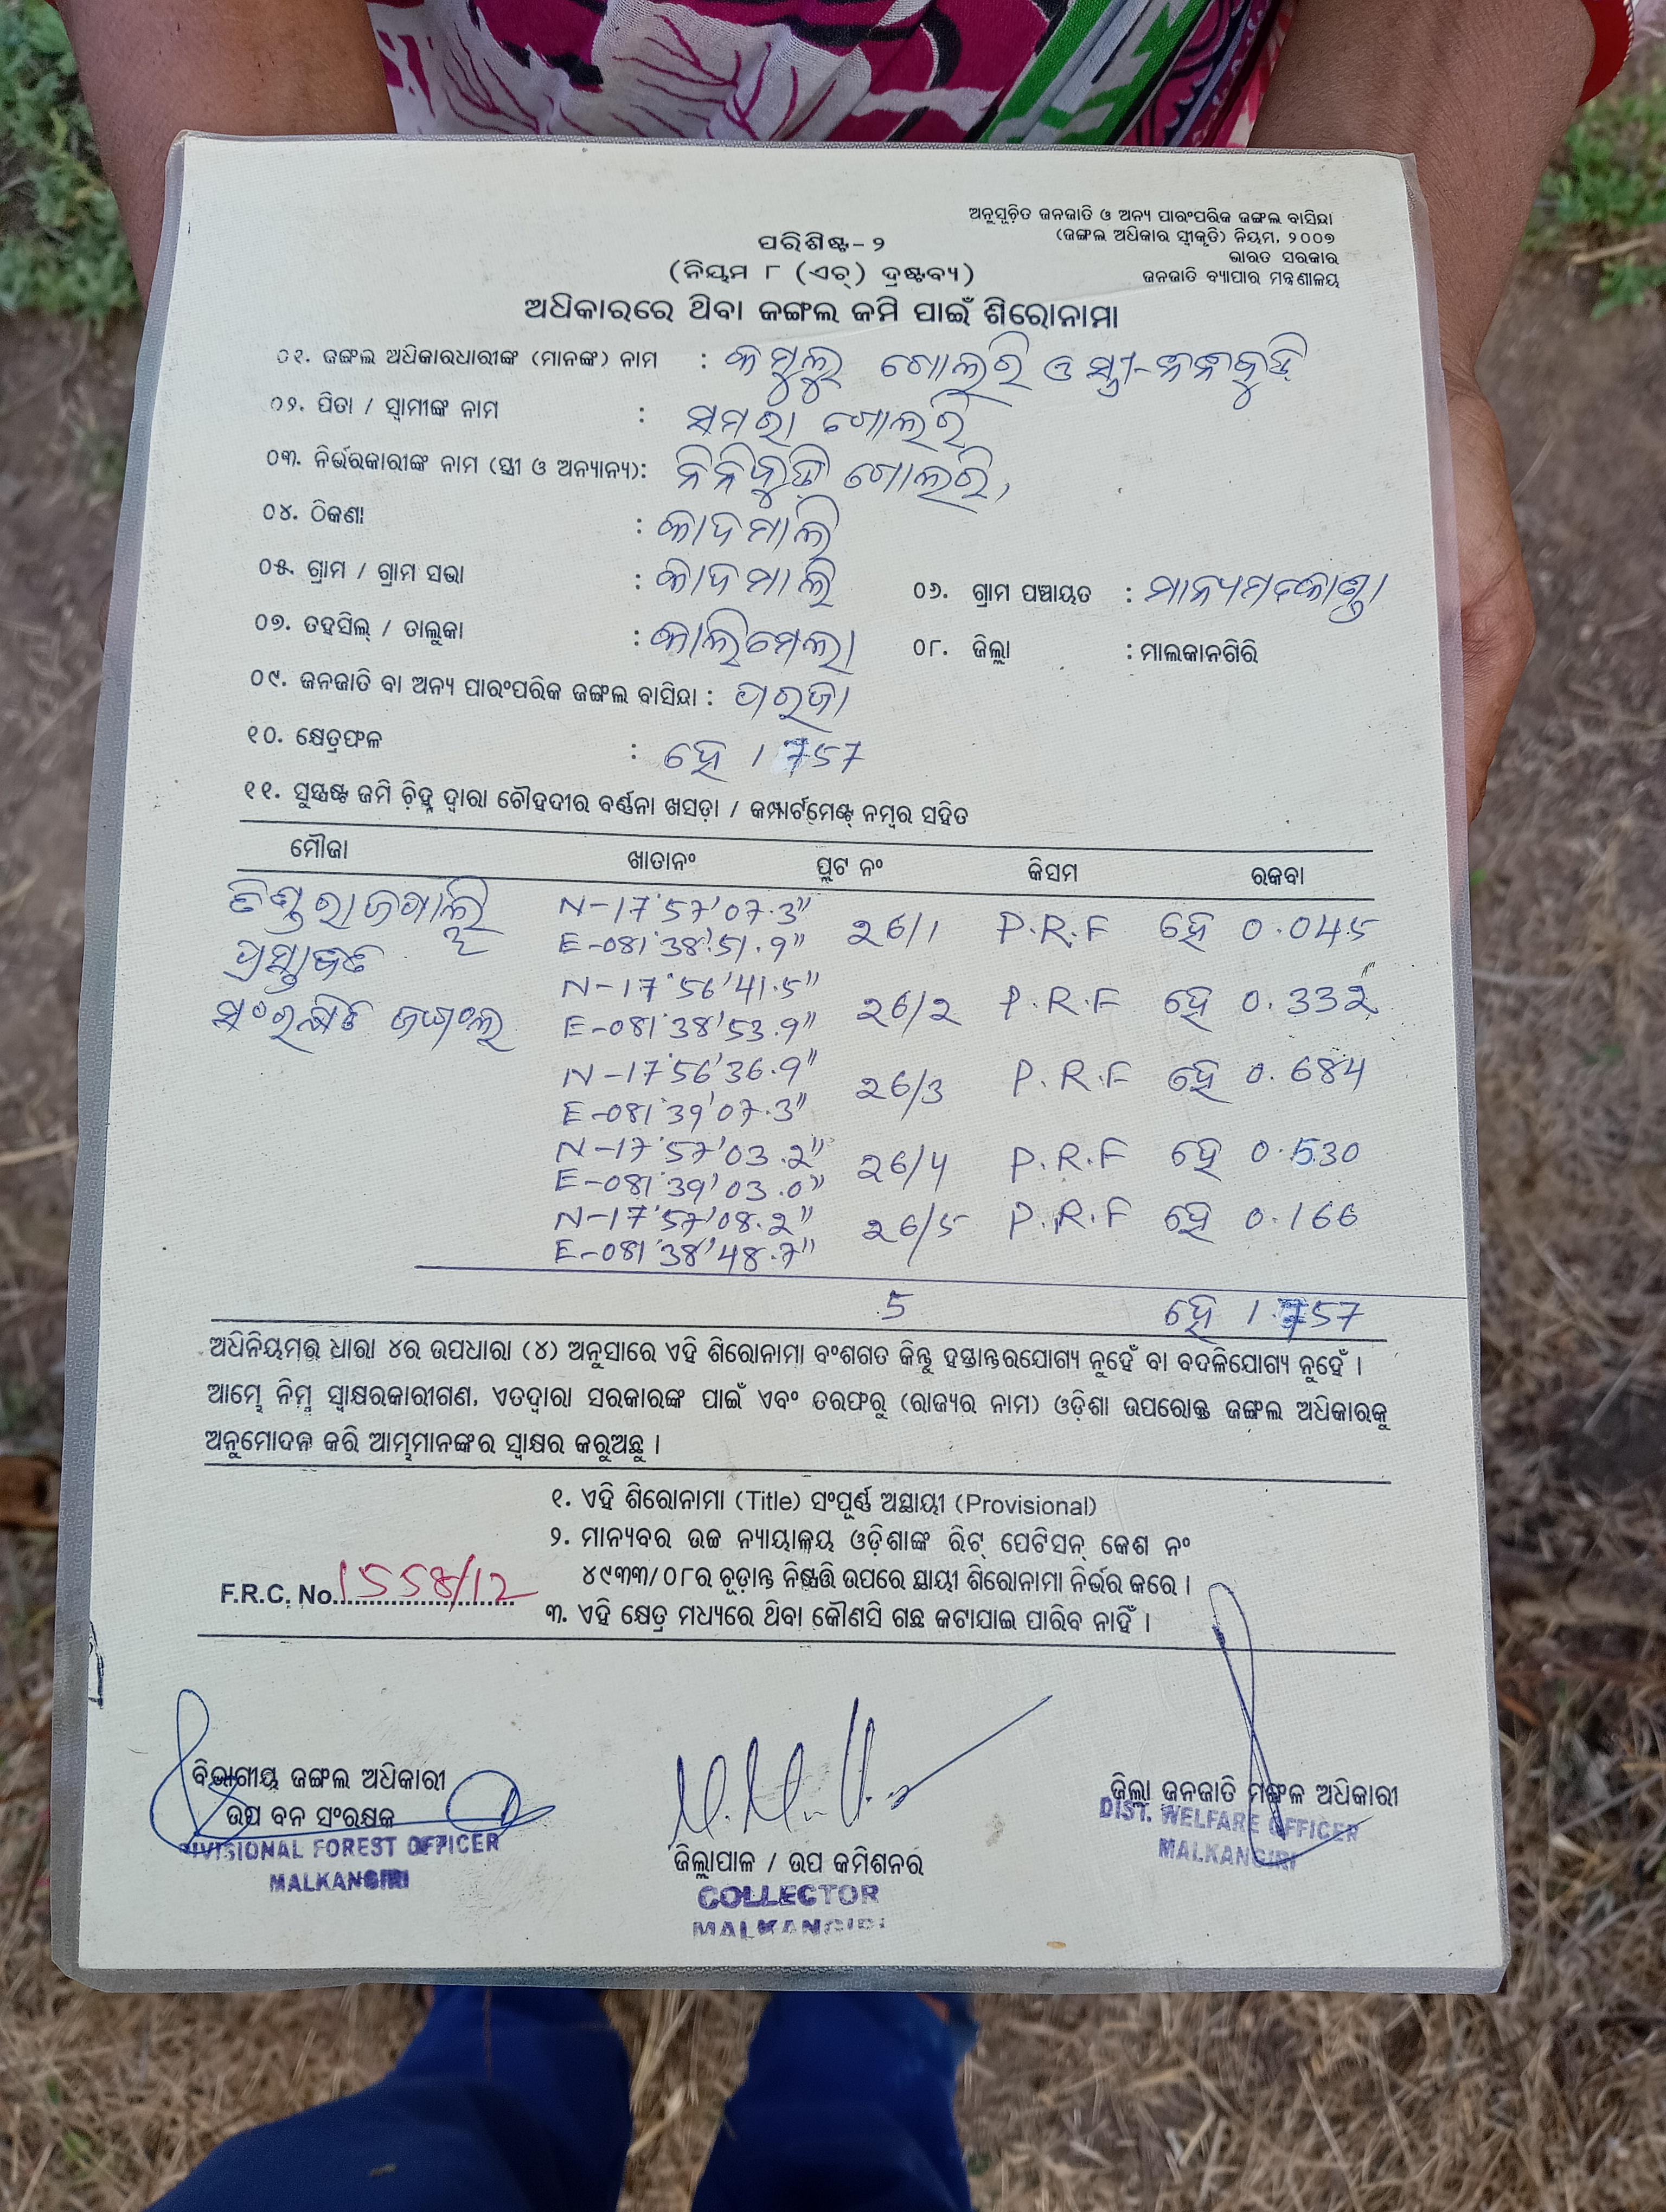 ଅନୁସୂଚିତ ଜନଜାତି ଓ ଅନ୍ୟ ପାରଂପରିକ ଜଙ୍ଗଲ ବାସିନ୍ଦା
(ଜଙ୍ଗଲ ଅଧିକାର ସ୍ୱୀକୃତି) ନିୟମ, ୨୦୦୭
ଭାରତ ସରକାର
ଜନଜାତି ବ୍ୟାପାର ମନ୍ତ୍ରଣାଳୟ
ପରିଶିଷ୍ଟ - ୨
(ନିୟମ ୮ (ଏଚ୍) ଦ୍ରଷ୍ଟବ୍ୟ)
ଅଧିକାରରେ ଥିବା ଜଙ୍ଗଲ ଜମି ପାଇଁ ଶିରୋନାମା
୦୧. ଜଙ୍ଗଲ ଅଧିକାରଧାରୀଙ୍କ (ମାନଙ୍କ) ନାମ : ଗୋଲରି ଓ ସ୍ତ୍ରୀ-
୦୨. ପିତା / ସ୍ୱାମୀଙ୍କ ନାମ : ସମରା ଗୋଲରି
୦୩. ନିର୍ଭରକାରୀଙ୍କ ନାମ (ସ୍ତ୍ରୀ ଓ ଅନ୍ୟାନ୍ୟ): ଗୋଲରି,
୦୪. ଠିକଣା : କାଦମାଲି
୦୫. ଗ୍ରାମ / ଗ୍ରାମ ସଭା : କାଦମାଲି ୦୬. ଗ୍ରାମ ପଞ୍ଚାୟତ :
୦୭. ତହସିଲ୍ / ତାଲୁକା : କାଲିମେଲା ୦୮. ଜିଲ୍ଲା : ମାଲକାନଗିରି
୦୯. ଜନଜାତି ବା ଅନ୍ୟ ପାରଂପରିକ ଜଙ୍ଗଲ ବାସିନ୍ଦା : ପରଜା
୧୦. କ୍ଷେତ୍ରଫଳ : ହେ 1 757
୧୧. ସୁସ୍ପଷ୍ଟ ଜମି ଚିହ୍ନ ଦ୍ୱାରା ଚୌହଦୀର ବର୍ଣ୍ଣନା ଖସଡ଼ା / କମ୍ପାର୍ଟମେଣ୍ଟ୍ ନମ୍ବର ସହିତ
ମୌଜା ଖାତାନଂ ପ୍ଲଟ ନଂ କିସମ ରକବା
N-17°57'07.3"
E-081°38'51.9" 26/1 P.R.F ହେ 0.045
ପ୍ରସ୍ତାବିତ N-17°56'41.5"
ସଂରକ୍ଷିତ ଜଙ୍ଗଲ E-081°38'53.9" 26/2 P.R.F ହେ 0.332
N-17°56'36.9"
E-081°39'07.3" 26/3 P.R.F ହେ 0.684
N-17°57'03.2"
E-081°39'03.0" 26/4 P.R.F ହେ 0.530
N-17°57'08.2"
E-081°38'48.7" 26/5 P.R.F ହେ 0.166
5 ହେ 1.757
ଅଧିନିୟମର ଧାରା ୪ର ଉପଧାରା (୪) ଅନୁସାରେ ଏହି ଶିରୋନାମା ବଂଶଗତ କିନ୍ତୁ ହସ୍ତାନ୍ତରଯୋଗ୍ୟ ନୁହେଁ ବା ବଦଳିଯୋଗ୍ୟ ନୁହେଁ ।
ଆମ୍ଭେ ନିମ୍ନ ସ୍ୱାକ୍ଷରକାରୀଗଣ, ଏତଦ୍ୱାରା ସରକାରଙ୍କ ପାଇଁ ଏବଂ ତରଫରୁ (ରାଜ୍ୟର ନାମ) ଓଡ଼ିଶା ଉପରୋକ୍ତ ଜଙ୍ଗଲ ଅଧିକାରକୁ
ଅନୁମୋଦନ କରି ଆମ୍ଭମାନଙ୍କର ସ୍ୱାକ୍ଷର କରୁଅଛୁ ।
୧. ଏହି ଶିରୋନାମା (Title) ସଂପୂର୍ଣ୍ଣ ଅସ୍ଥାୟୀ (Provisional)
୨. ମାନ୍ୟବର ଉଚ୍ଚ ନ୍ୟାୟାଳୟ ଓଡ଼ିଶାଙ୍କ ରିଟ୍ ପେଟିସନ୍ କେଶ ନଂ
୪୯୩୩/୦୮ର ଚୂଡ଼ାନ୍ତ ନିଷ୍ପତ୍ତି ଉପରେ ସ୍ଥାୟୀ ଶିରୋନାମା ନିର୍ଭର କରେ ।
F.R.C. No. 1558/12
୩. ଏହି କ୍ଷେତ୍ର ମଧ୍ୟରେ ଥିବା କୌଣସି ଗଛ କଟାଯାଇ ପାରିବ ନାହିଁ ।
ବିଭାଗୀୟ ଜଙ୍ଗଲ ଅଧିକାରୀ
ଉପ ବନ ସଂରକ୍ଷକ
DIVISIONAL FOREST OFFICER
MALKANGIRI
ଜିଲ୍ଲାପାଳ / ଉପ କମିଶନର
COLLECTOR
MALKANGIRI
ଜିଲ୍ଲା ଜନଜାତି ମଙ୍ଗଳ ଅଧିକାରୀ
DIST. WELFARE OFFICER
MALKANGIRI